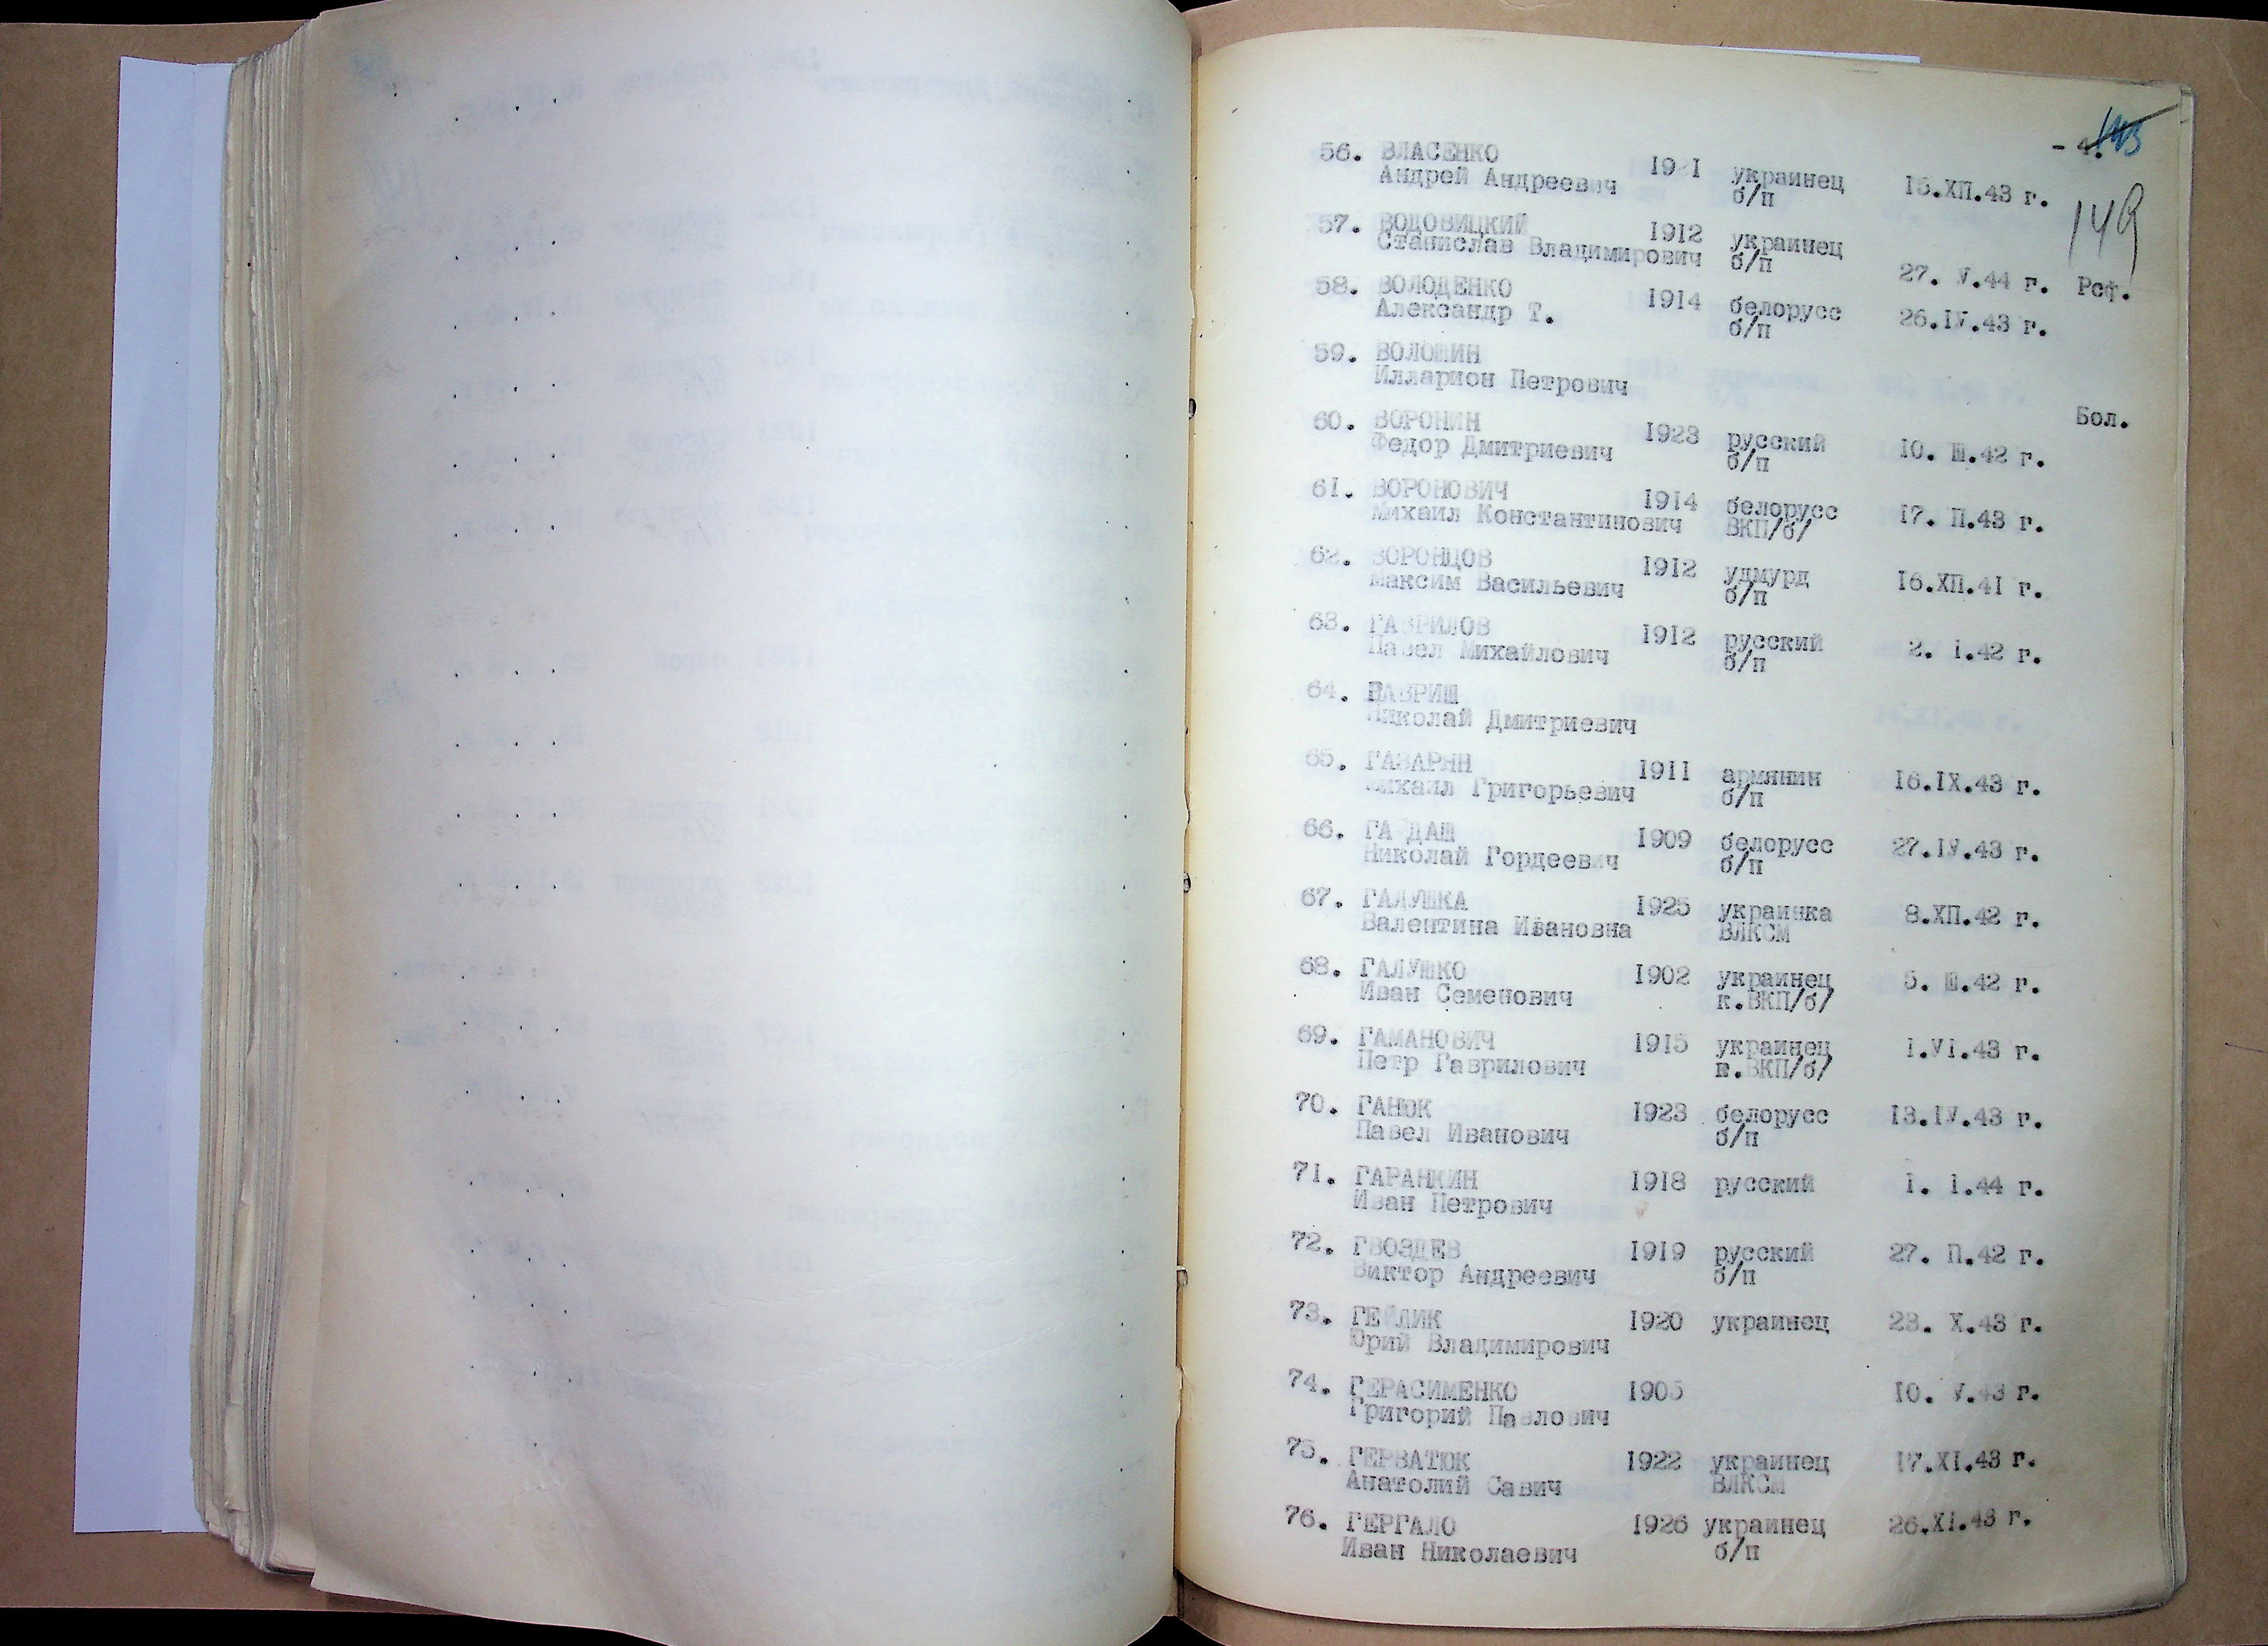 - 4.
143
149
56. ВЛАСЕНКО 19 1 украинец 15.ХП.43 г.
Андрей Андреевич б/п
57. ВОДОВИЦКИЙ 1912 украинец
Станислав Владимирович б/п 27. У.44 г. Рсф.
58. ВОЛОДЕНКО 1914 белорусс 26.IУ.43 г.
Александр Т. б/п
59. ВОЛОШИН
Илларион Петрович Бол.
60. ВОРОНИН 1923 русский 10. Ш.42 г.
Федор Дмитриевич б/п
61. ВОРОНОВИЧ 1914 белорусс 17. П.43 г.
Михаил Константинович ВКП/б/
62. ВОРОНЦОВ 1912 удмурд 16.ХП.41 г.
Максим Васильевич б/п
63. ГАВРИЛОВ 1912 русский 2. I.42 г.
Павел Михайлович б/п
64. ГАВРИШ
Николай Дмитриевич
65. ГАЗАРЯН 1911 армянин 16.IХ.43 г.
Михаил Григорьевич б/п
66. ГАЙДАШ 1909 белорусс 27.IУ.43 г.
Николай Гордеевич б/п
67. ГАЛУШКА 1925 украинка 8.ХП.42 г.
Валентина Ивановна ВЛКСМ
68. ГАЛУШКО 1902 украинец 5. Ш.42 г.
Иван Семенович к.ВКП/б/
69. ГАМАНОВИЧ 1915 украинец I.УI.43 г.
Петр Гаврилович к.ВКП/б/
70. ГАНЮК 1923 белорусс 13.IУ.43 г.
Павел Иванович б/п
71. ГАРАНКИН 1918 русский I. I.44 г.
Иван Петрович
72. ГВОЗДЕВ 1919 русский 27. П.42 г.
Виктор Андреевич б/п
73. ГЕЙЛИК 1920 украинец 23. Х.43 г.
Юрий Владимирович
74. ГЕРАСИМЕНКО 1905 10. У.43 г.
Григорий Павлович
75. ГЕРВАТЮК 1922 украинец 17.ХI.43 г.
Анатолий Савич ВЛКСМ
76. ГЕРГАЛО 1926 украинец 26.ХI.43 г.
Иван Николаевич б/п